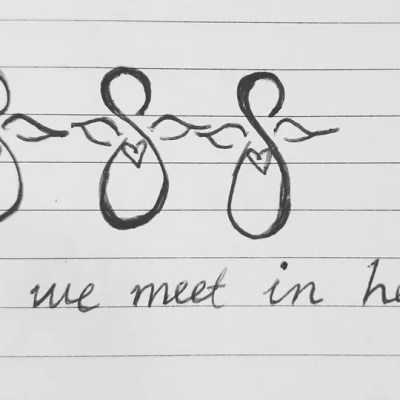 we meet in he